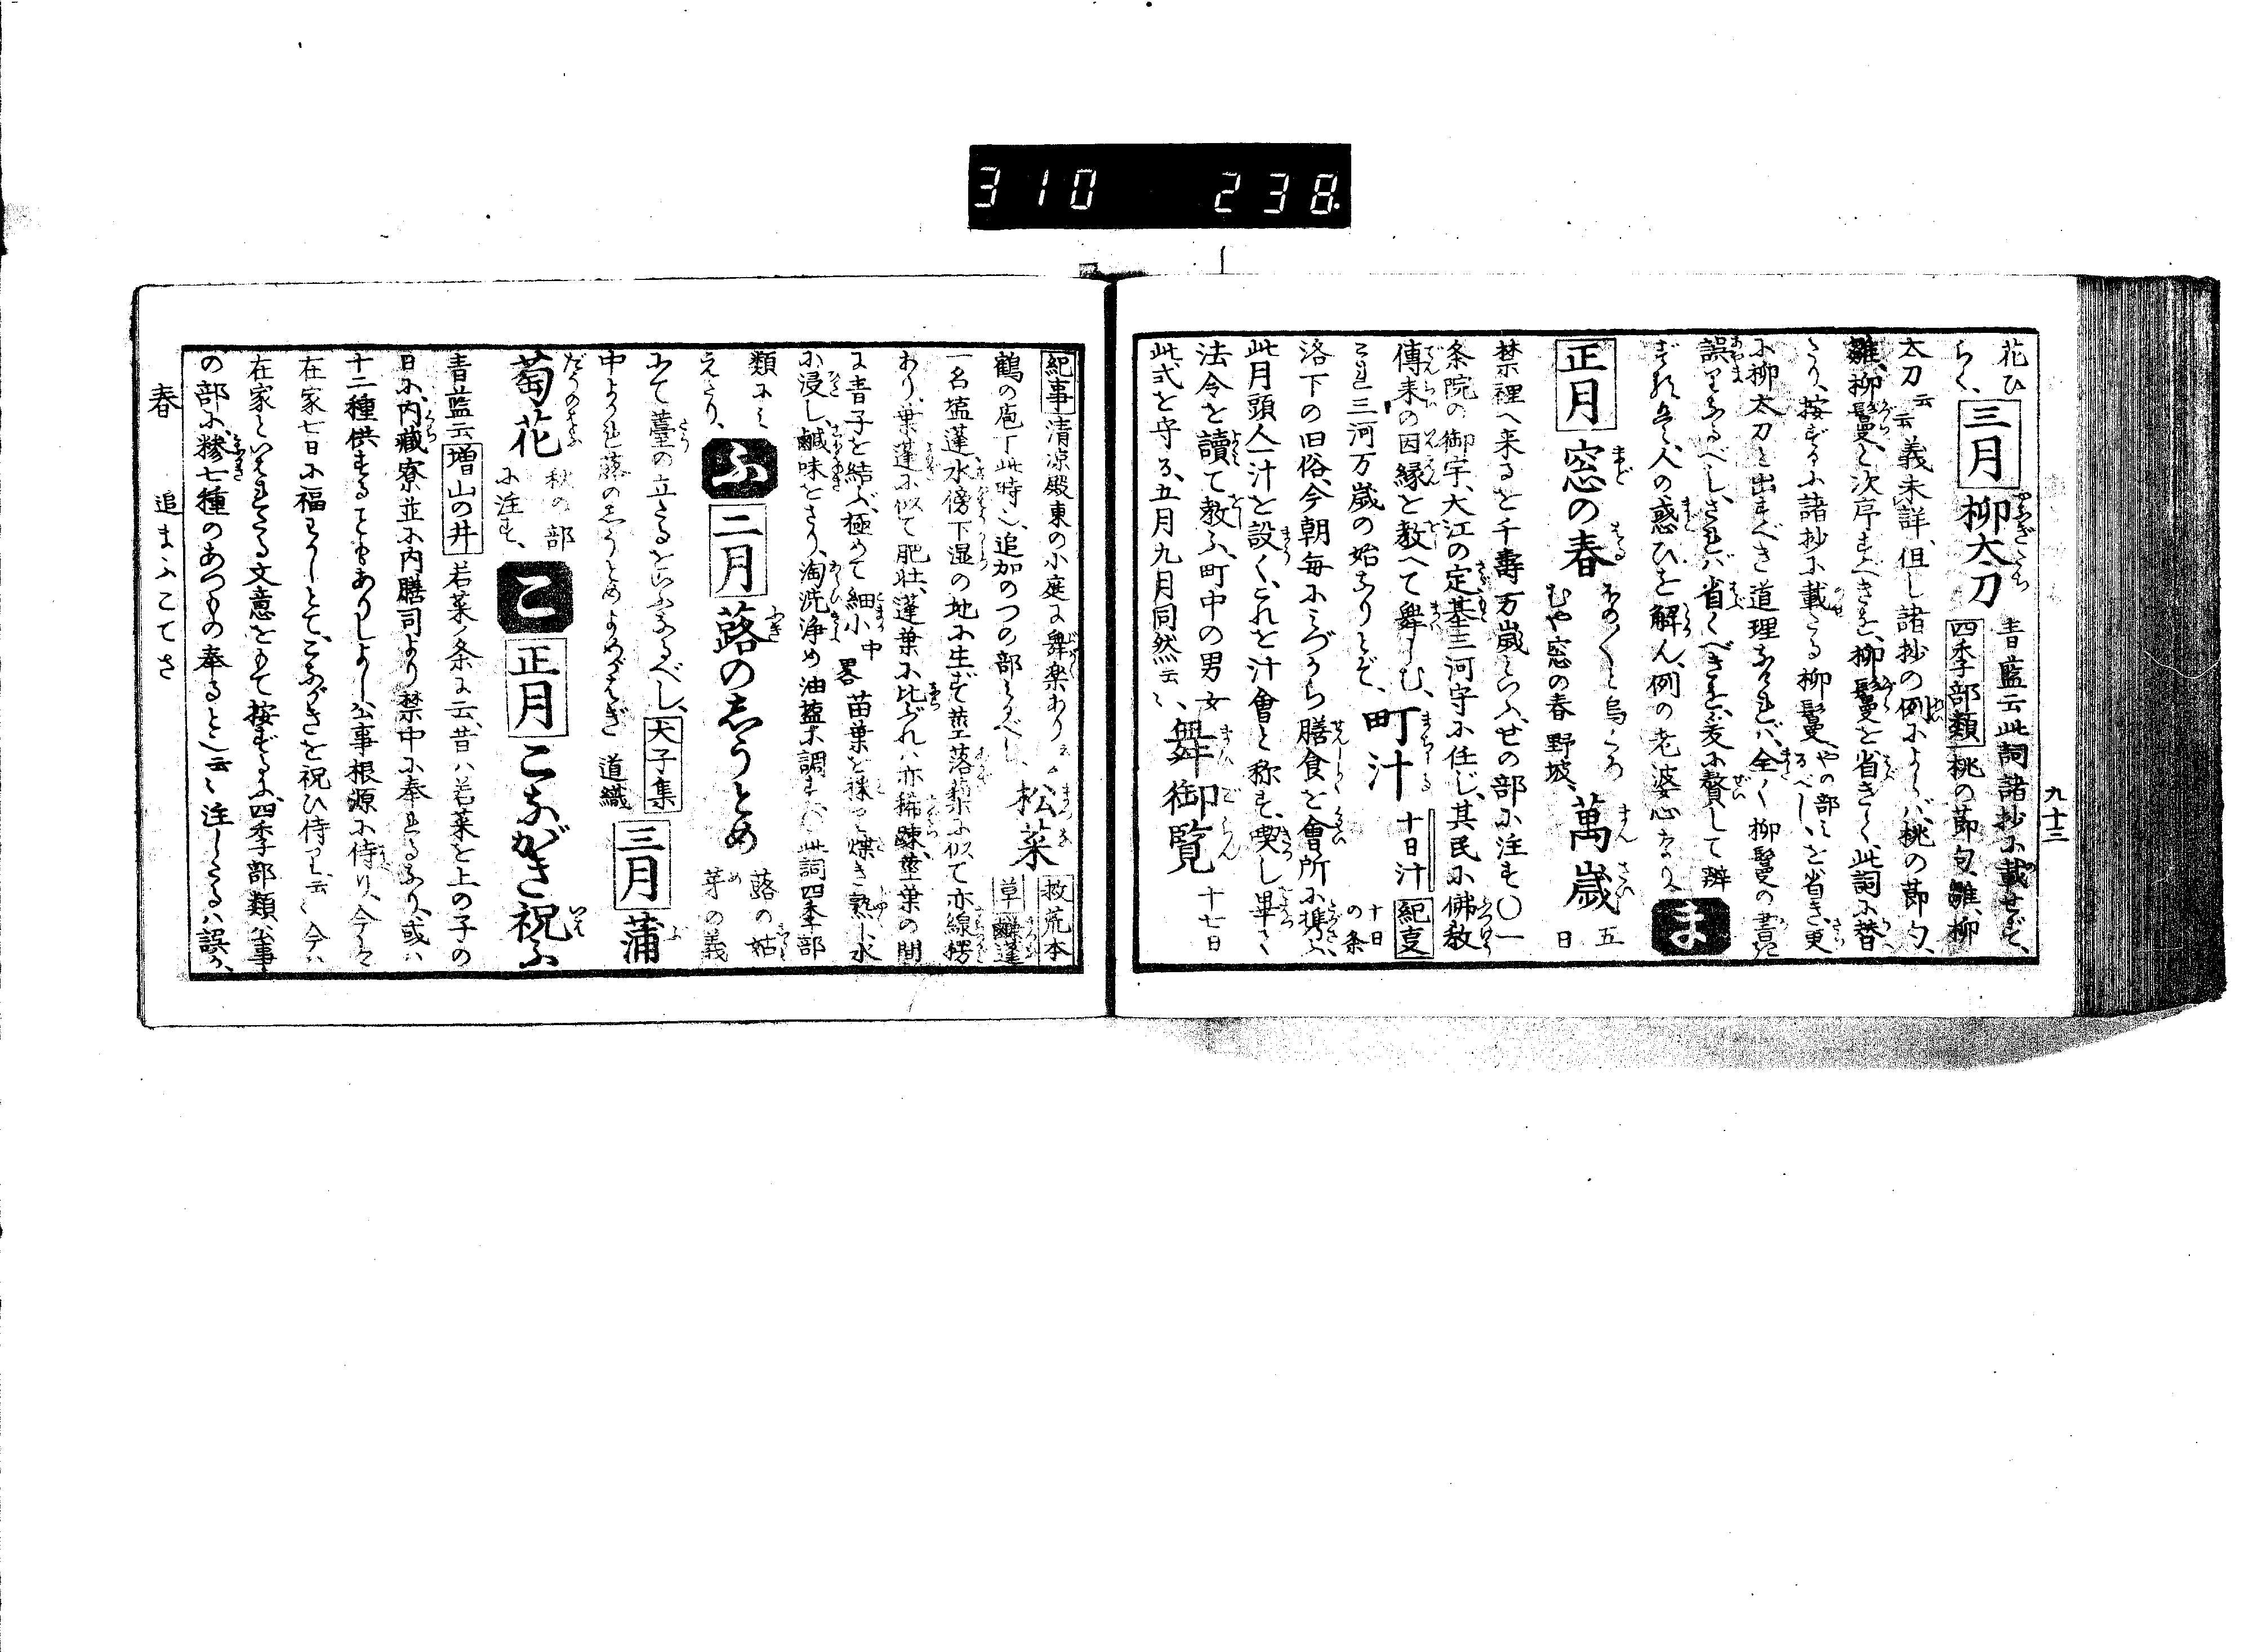 310 238
九十三
花ひらく、三月 柳太刀 青藍云此詞諸抄に載せず、
四季部類 桃の節句、雛、柳
太刀云云義未詳、但し諸抄の例によらバ、桃の節句、
雛、柳鬘と次序すべきを、柳鬘を省きて、此詞に替
たり、按ずるに諸抄に載たる柳鬘 やの部に を省き、更
に柳太刀と出すべき道理なけれバ、全く柳鬘の書
誤りなるべし、されバ省くべきを、爰に贅して辨
人の惑ひを解ん、例の老婆心なり、ま
正月 窓の春 ほの〳〵と烏くろむや窓の春 野坡、萬歳 五日
禁裡へ来るを千壽万歳といふ、せの部に注す〇一
条院の御宇、大江の定基三河守に任じ、其民に佛教
傳来の因縁を教へて舞しむ、
これ三河万歳の始なりとぞ、町汁 十日汁 紀事 十日の条
洛下の旧俗、今朝毎にみづから膳食を會所に携ふ、
此月頭人一汁を設く、これを汁會と称す、喫し畢て
法令を讀て教ふ、町中の男女
此式を守る、五月九月同然云々、舞御覧 十七日
紀事 清凉殿東の小庭に舞楽あり云々
鶴の庖丁此時也、追加のつの部 松菜 救荒本草
一名塩蓬、水傍下湿の地に生ず、茎落藜に似て亦線楞
あり、葉蓬に似て肥壮、蓬葉に比ぶれバ亦稀疎、茎葉の間
に青子を結ぶ、極めて細小 中畧 苗葉を採て煠き熟し、水
に浸し鹹味をさり、淘洗浄め油塩に調す、此詞四季部
類にみえたり、ふ 二月 蕗のしうとめ 蕗の姑 芽の義
にて薹の立たるをいふなるべし、犬子集
中よかれ蕗のしうとめよめがはぎ 道織 三月 蒲
萄花 秋の部に注す、こ 正月 こながき祝ふ
青藍云 増山の井 若菜ノ条に云、昔ハ若菜を上の子の
日に、内蔵寮並に内膳司より禁中に奉れるなり、或ハ
十二種供することもありしよし、公事根源に侍り、今は
在家七日に福わかしとて、こながきを祝ひ侍りし云々 今ハ
在家といはれたる文意をもて按ずるに、四季部類公事
の部に、糝七種のあつもの奉ると也云々 注したるハ誤か、
春 追まふこてさ